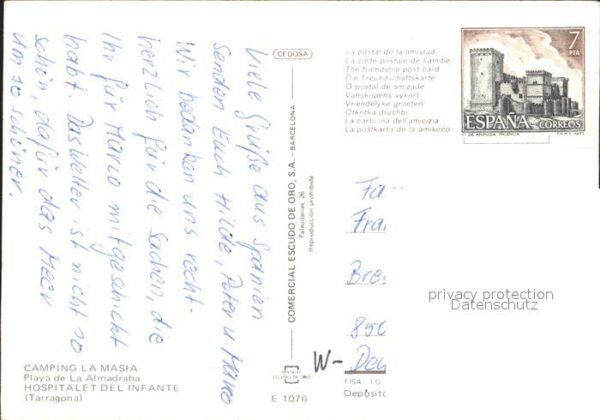 Viele Grüße aus Spanien
Senden Euch Hilde, Peter u. Marco
Wir bedanken uns recht-
herzlich für die Sachen, die
Ihr für Marco mitgeschickt
habt. Das Wetter ist nicht so
schön, dafür das Meer
um so schöner.
CAMPING LA MASIA
Playa de La Almadraba
HOSPITALET DEL INFANTE
(Tarragona)
CEDOSA
COMERCIAL ESCUDO DE ORO, S.A. - BARCELONA
Palaudarias, 26
Reproducción prohibida
E 1076
La postal de la amistad
La carte postale de l'amitie
The friendship post card
Die Freundschaftskarte
O postal de amizade
Vanskopens vykort
Vriendelyke groeten
Otkritka druzhbi
La cartolina dell'amicizia
La poŝtkarto de la amikeco
7
PTA
ESPAÑA
CORREOS
Fa
Fra
Bre
850
W-
De
privacy protection
Datenschutz
FISA I.G.
Depósito